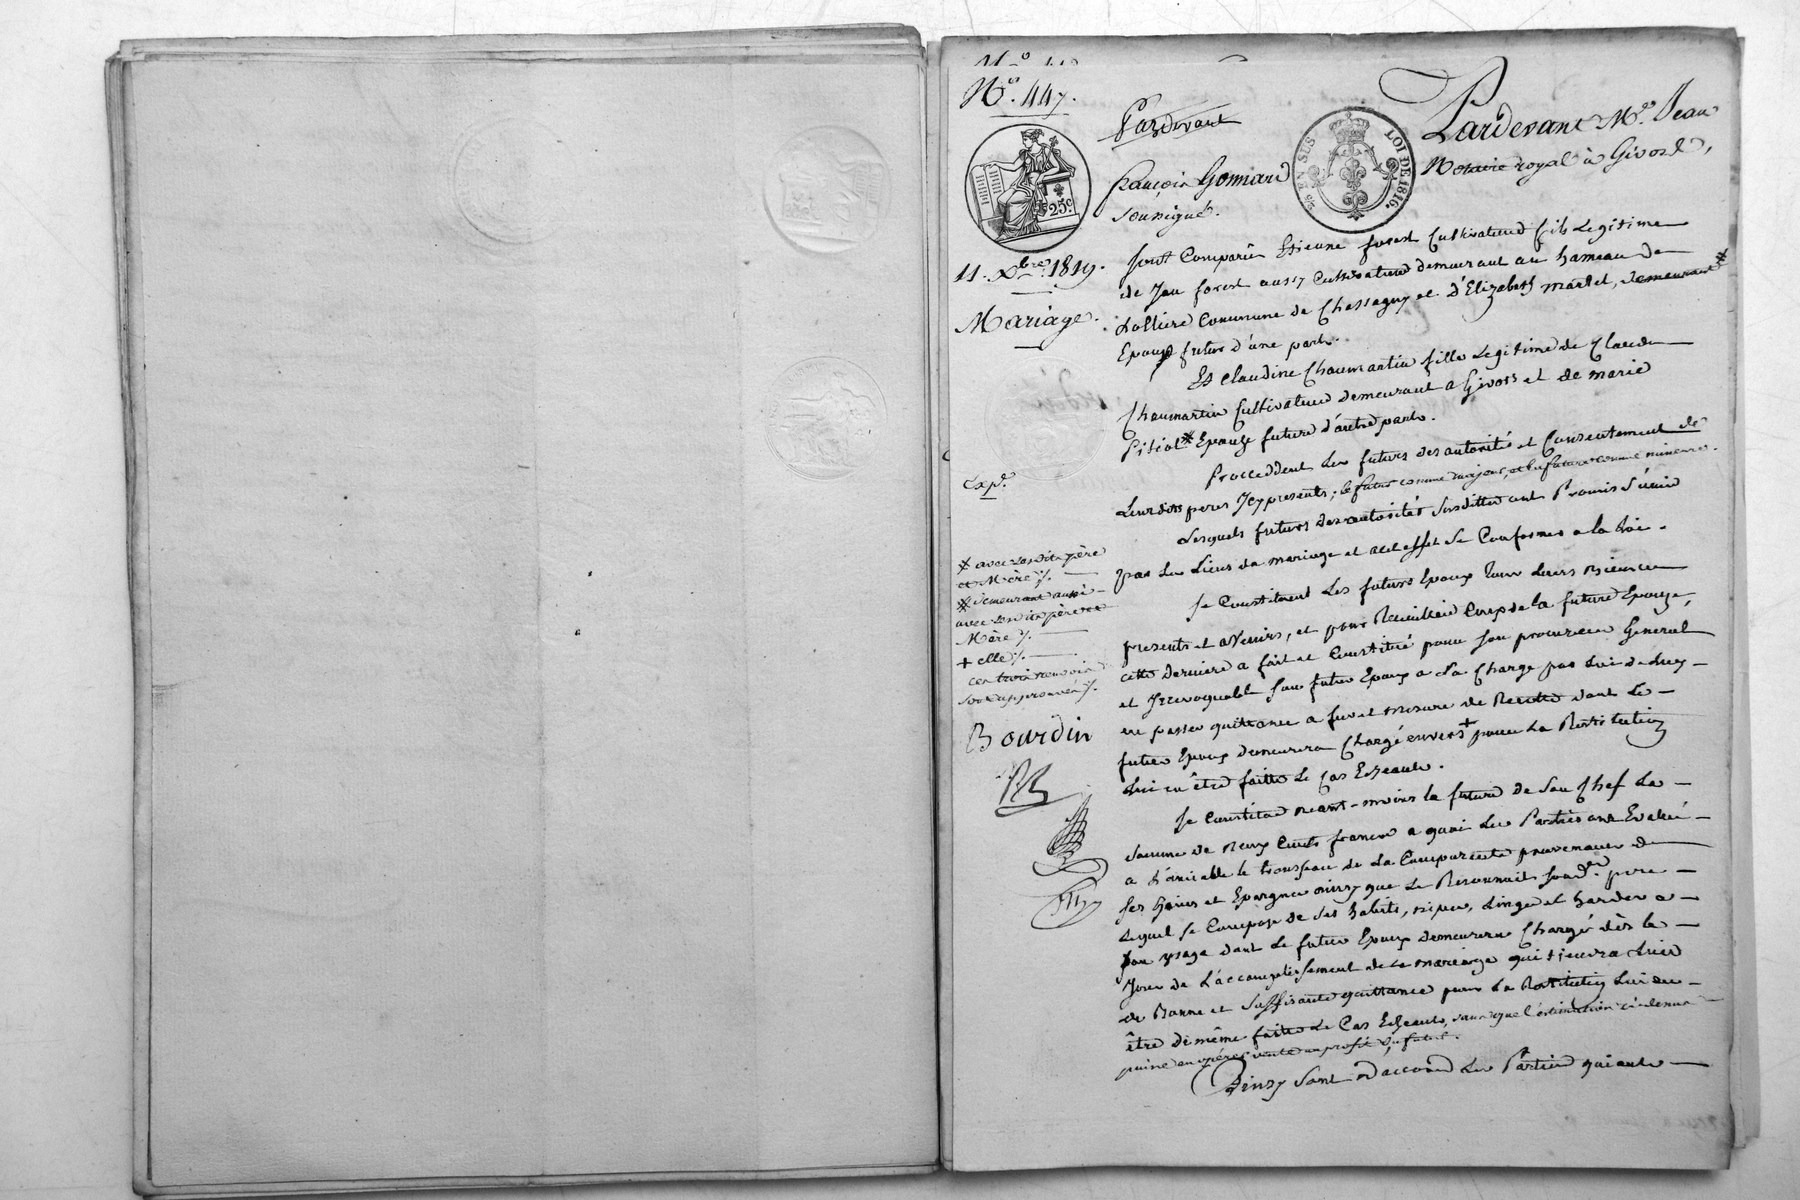 N.º 447.
Pardevant
Pardevant M.e Jean
françois Gonniard
Notaire royal à Givors,
soussigné.
EN SUS
LOI DE 1816.
25c
11. Xbre 1819.
Mariage.
Sont Comparus Etienne forest Cultivateur fils Legitime
de Jean forest aussy Cultivateur demeurant au hameau de
Commune de Chassagny et d'Elizabeth martel, demeurant
Epoux futur d'une part.
Et Claudine Chaumartin fille Legitime de Claude
Chaumartin Cultivateur demeurant a Givors et de marie
Epouze future d'autre part.
Proceddent les futurs des autorité et Consentement de
Leurdits peres Jcy presents; le futur comme majeur, et la future comme mineure.
Lesquels futurs des autorités susdittes ont Promis s'unir
par les Liens du mariage et a cet effet se Conformer a la Loi.
Se Constituent les futurs Epoux tous leurs Biens
presents et avenirs, et pour Recueillir Ceux de la future Epouze,
cette derniere a fait et Constitué pour son procureur General
et Jrrevoquable son futur Epoux a La Charge par lui de
en passer quittance a fur et mesure de Recette dont Le
futur Epoux demeurera Chargé envers + pour La Restitution
Lui en être faitte Le Cas Echeant.
Se Constitue neant-moins la future de Son Chef La
Somme de Cents francs a quoi Les Parties ont Evalué
a L'amiable le trousseau de La Comparante provenant de
ses Gains et Epargnes ainsy que Le Reconnait son d. pere
Lequel se Compose de ses habits, nipes, Linge et hardes a
son usage dont Le futur Epoux demeurera Chargé dès le
Jour de L'accomplissement de Le mariage qui tiendra Lieu
de Bonne et suffisante quittance pour La Restitution Lui en
être de même faitte Le Cas Echeant, sans que l'estimation ci-dessus
puisse en opérer vente au profit du futur.
Ainsy sont d'accord Les Parties qui ont
Exp.e
* avec sesdits père
et Mère ./.
* demeurant aussi
avec sesdits père et
Mère ./.
+ elle ./.
ces trois renvois
sont approuvés ./.
Bourdin